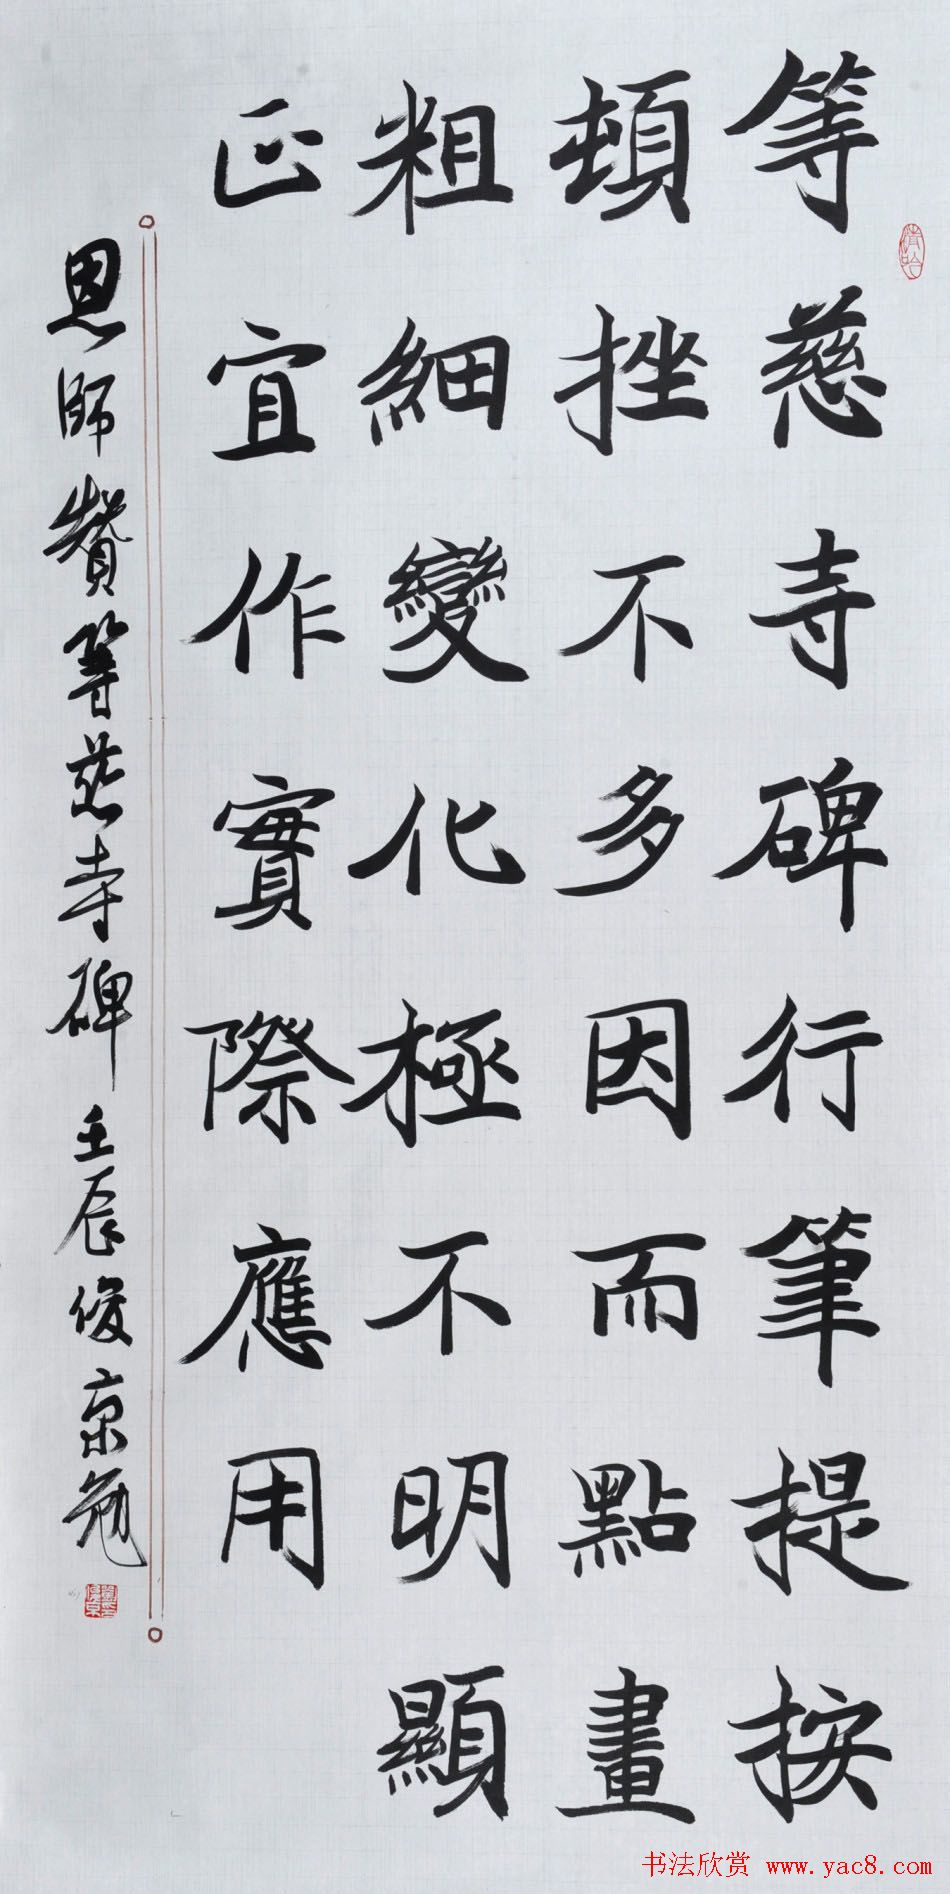 等慈寺碑行筆提按
頓挫不多因而點畫
粗細變化極不明顯
正宜作實際應用
恩師贊等慈寺碑 壬辰俊京勉
书法欣赏 www.yac8.com